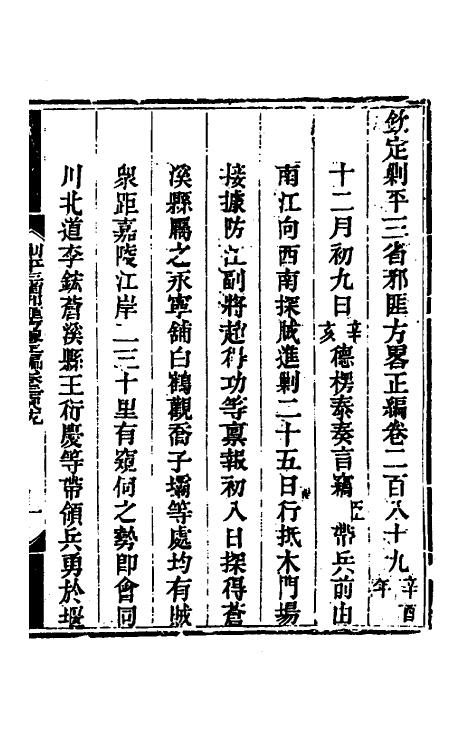 欽定剿平三省邪匪方畧正編卷二百八十九 辛酉年
十二月初九日辛亥德楞泰奏言竊臣帶兵前由
南江向西南探賊進剿二十五日行抵木門場
接據防江副將趙得功等稟報初八日探得蒼
溪縣屬之永寧舖白鶴觀喬子壩等處均有賊
衆距嘉陵江岸二三十里有窺伺之勢即會同
川北道李鋐蒼溪縣王衍慶等帶領兵勇於堰